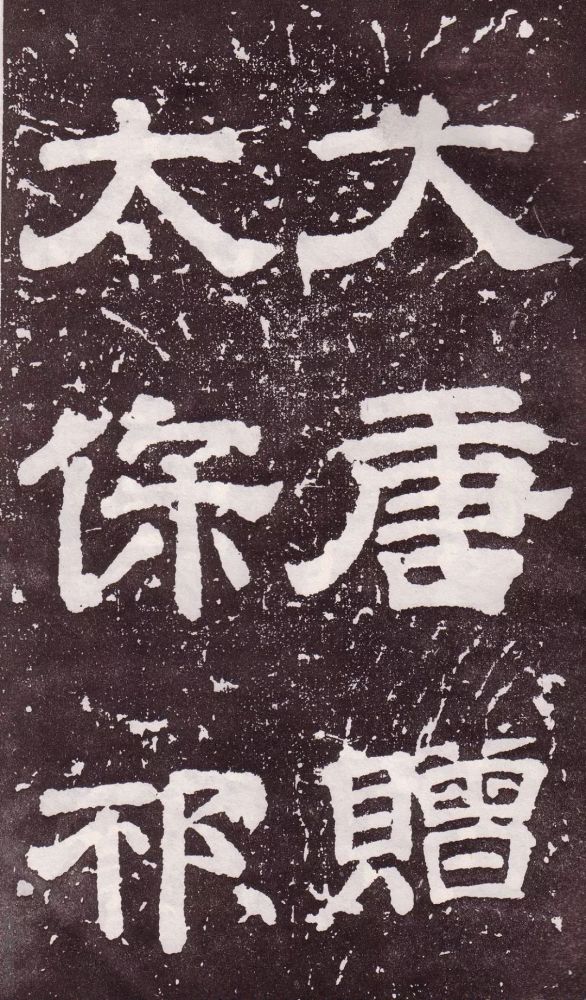 大唐贈
太保祁